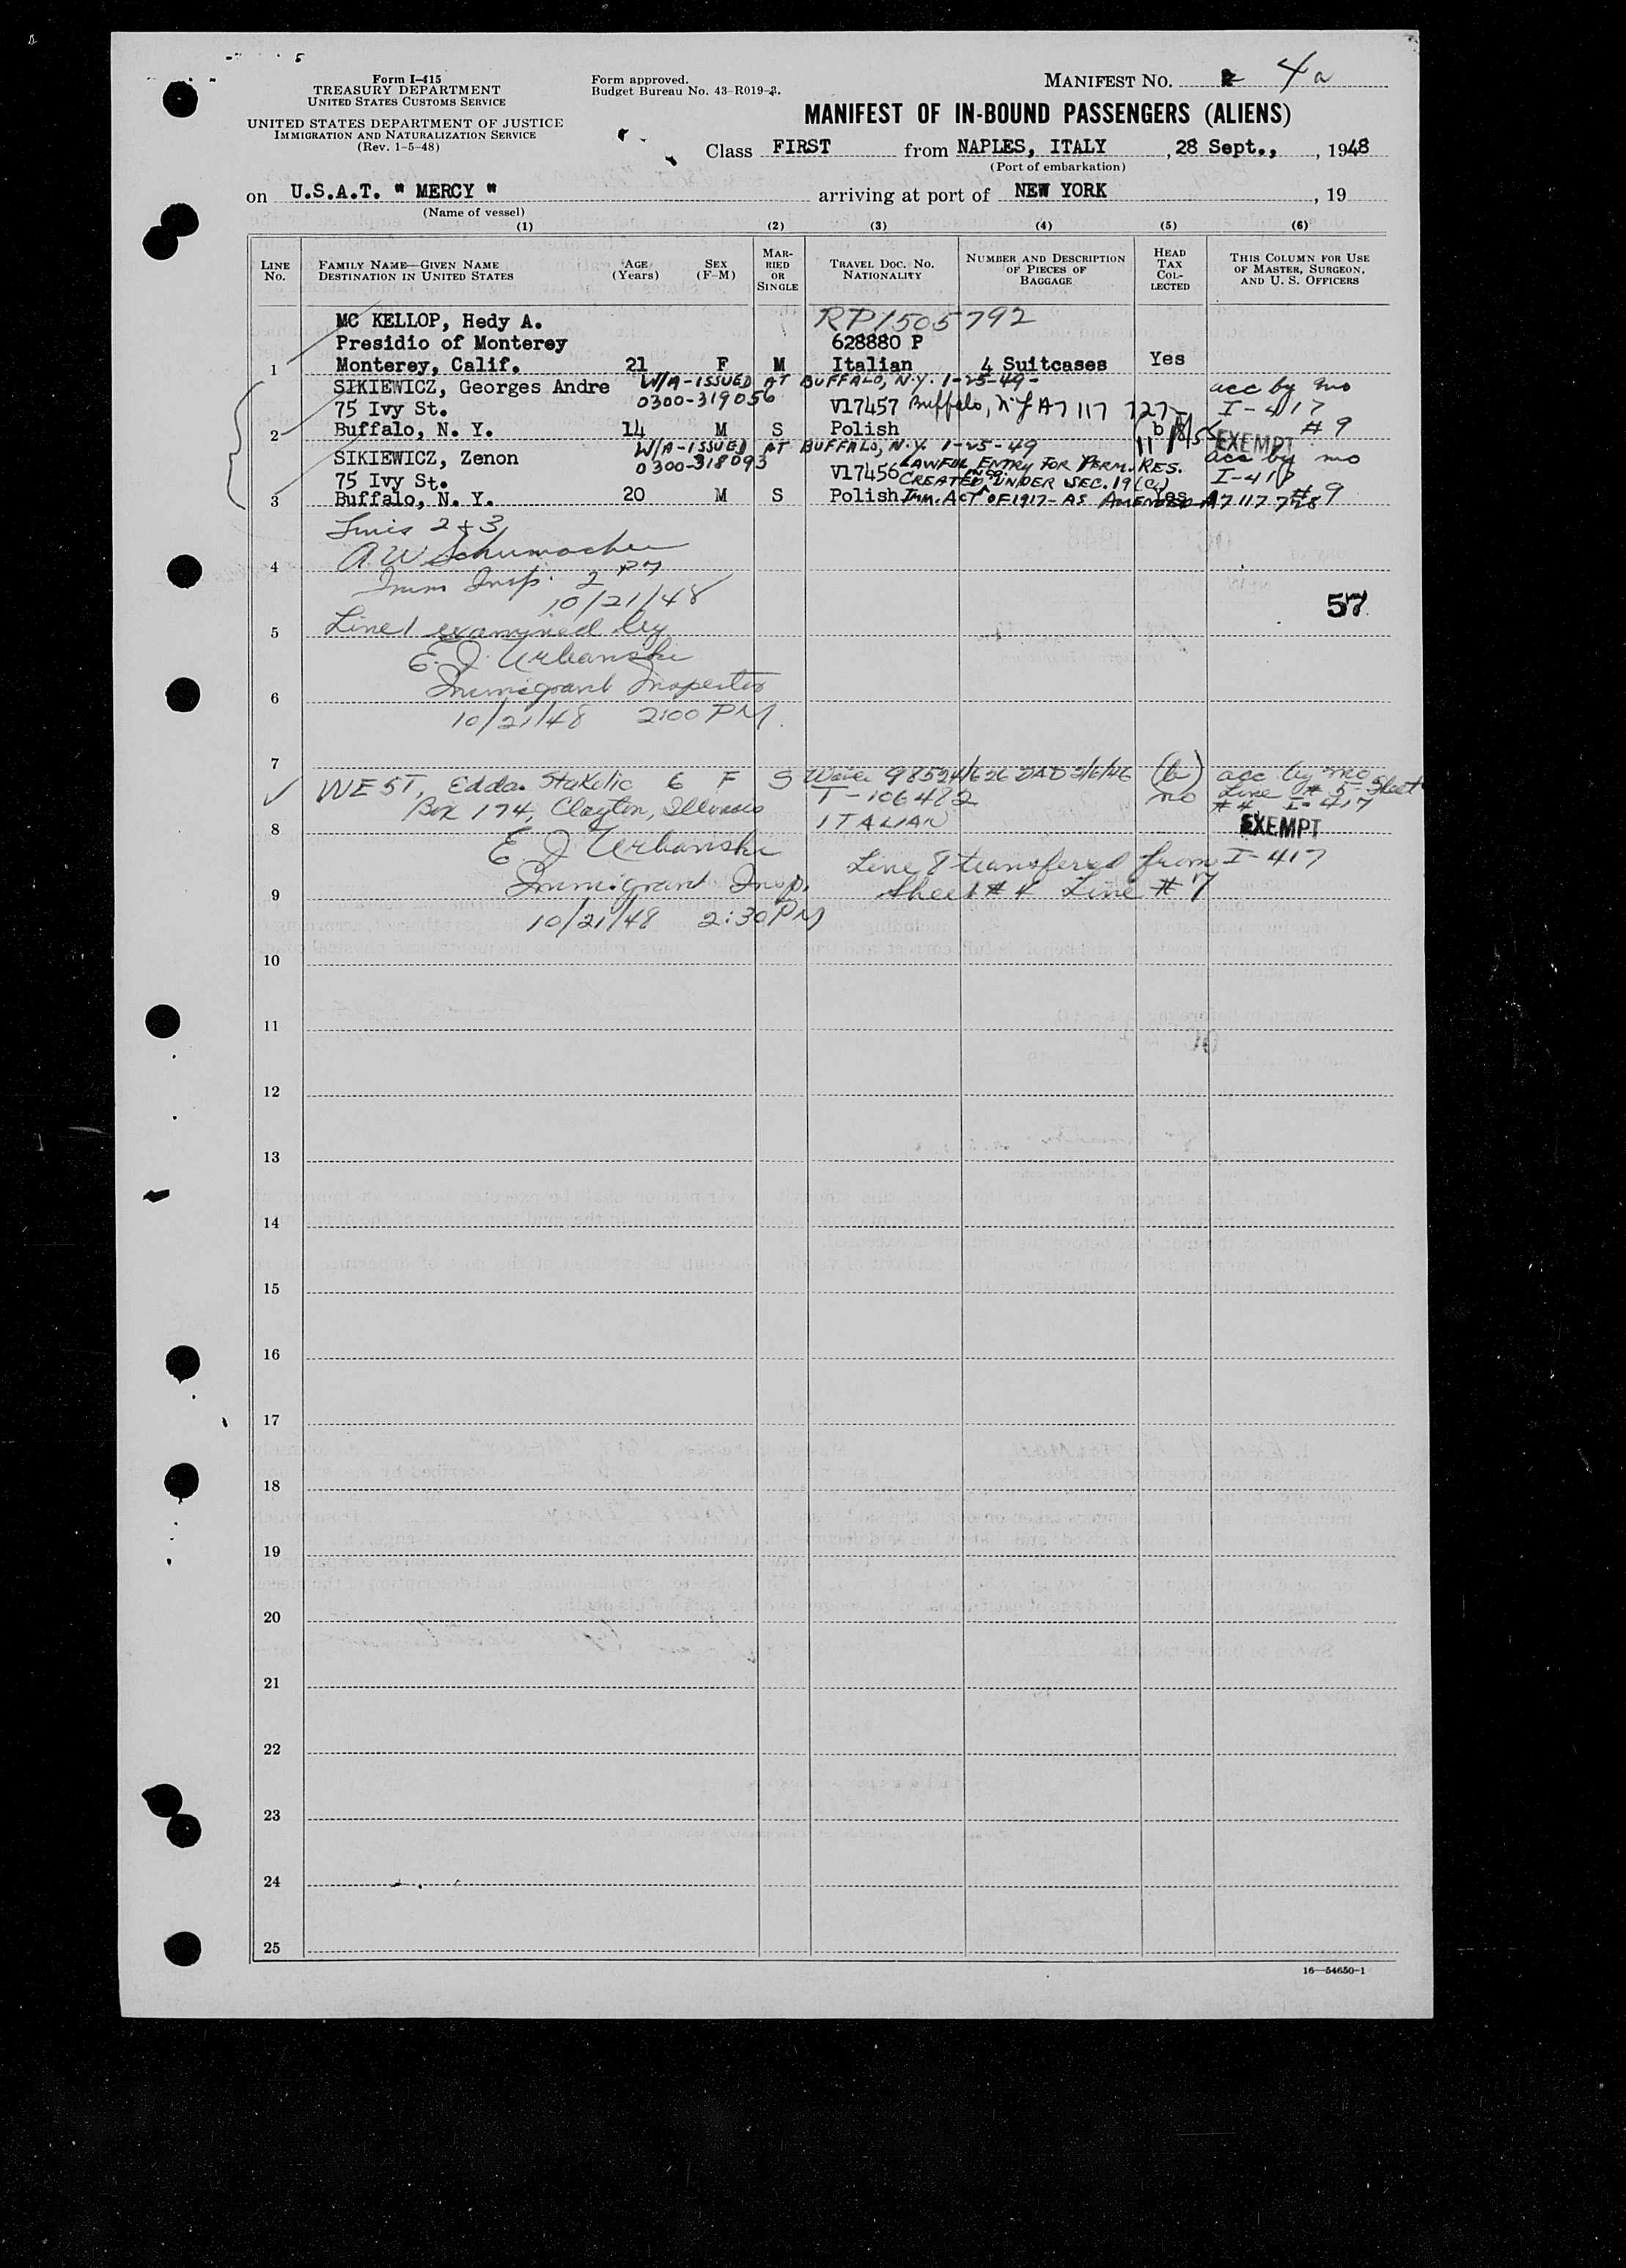 Form I-415
TREASURY DEPARTMENT
UNITED STATES CUSTOMS SERVICE
UNITED STATES DEPARTMENT OF JUSTICE
IMMIGRATION AND NATURALIZATION SERVICE
(Rev. 1-5-48)
Form approved.
Budget Bureau No. 43-R019-3.
MANIFEST NO. 4a
MANIFEST OF IN-BOUND PASSENGERS (ALIENS)
Class FIRST from NAPLES, ITALY, 28 Sept., , 1948
(Port of embarkation)
on U.S.A.T. " MERCY " arriving at port of NEW YORK , 19
(Name of vessel)
(1) (2) (3) (4) (5) (6)
LINE No. FAMILY NAME—GIVEN NAME DESTINATION IN UNITED STATES AGE (Years) SEX (F-M) MARRIED OR SINGLE TRAVEL DOC. NO. NATIONALITY NUMBER AND DESCRIPTION OF PIECES OF BAGGAGE HEAD TAX COLLECTED THIS COLUMN FOR USE OF MASTER, SURGEON, AND U. S. OFFICERS
MC KELLOP, Hedy A. RP1505792
Presidio of Monterey 628880 P
1 Monterey, Calif. 21 F M Italian 4 Suitcases Yes
SIKIEWICZ, Georges Andre W/A-ISSUED AT BUFFALO, N.Y. 1-25-49- acc by mo
75 Ivy St. 0300-319056 V17457 Buffalo, N.Y A7 117 727 I-417
2 Buffalo, N. Y. 14 M S Polish b # 9
W/A-ISSUED AT BUFFALO, N.Y. 1-25-49 EXEMPT
SIKIEWICZ, Zenon 0300-318093 LAWFUL ENTRY FOR PERM. RES. acc by mo
75 Ivy St. V17456 CREATED UNDER SEC. 19(c) I-417
3 Buffalo, N. Y. 20 M S Polish IMM. ACT OF 1917- AS AMENDED Yes A7 117 728 # 9
Lines 2 & 3
A. W Schumacher
4
Imm Insp. 2 PM
10/21/48
57
Line 1 examined by
5
E. J. Urbanski
Immigrant Inspector
6
10/21/48 2:00 PM.
7
WEST, Edda Stakelic 6 F S Waiver 98524/626 DAD 2/6/46 (b) acc. by mo
Box 174, Clayton, Illinois T-106482 no Line # 5 Sheet
# 4 I-417
8 ITALIAN EXEMPT
E J Urbanski
Line 8 transferred from I-417
Immigrant Insp. Sheet # 4 Line # 7
9
10/21/48 2:30 PM
10
11
12
13
14
15
16
17
18
19
20
21
22
23
24
25
16—54650-1